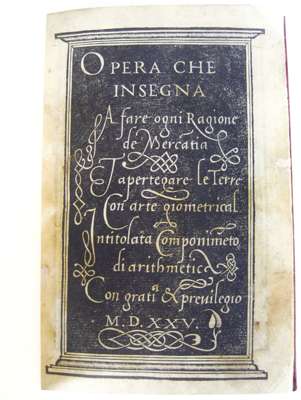 OPERA CHE
INSEGNA
A fare ogni Ragione
de Mercatia
Et apertegare le terre
Con arte giometrical
Intitolata Componimēto
di arithmetica
Con gratia & previlegio
M.D.XXV.